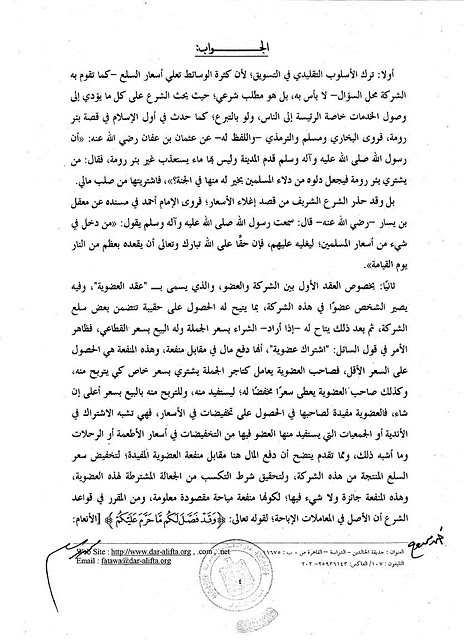 الجـــواب:
أولا: ترك الأسلوب التقليدي في التسويق؛ لأن كثرة الوسائط تعلي أسعار السلع –كما تقوم به
الشركة محل السؤال– لا بأس به، بل هو مطلب شرعي؛ حيث يحث الشرع على كل ما يؤدي إلى
وصول الخدمات خاصة الرئيسة إلى الناس، ولو بالتبرع؛ كما حدث في أول الإسلام في قصة بئر
رومة، فروى البخاري ومسلم والترمذي –واللفظ له– عن عثمان بن عفان رضي الله عنه: «أن
رسول الله صلى الله عليه وآله وسلم قدم المدينة وليس بها ماء يستعذب غير بئر رومة، فقال: من
يشتري بئر رومة فيجعل دلوه من دلاء المسلمين بخير له منها في الجنة؟»، فاشتريتها من صلب مالي.
بل وقد حذر الشرع الشريف من قصد إغلاء الأسعار؛ فروى الإمام أحمد في مسنده عن معقل
بن يسار –رضي الله عنه– قال: سمعت رسول الله صلى الله عليه وآله وسلم يقول: «من دخل في
شيء من أسعار المسلمين؛ ليغليه عليهم، فإن حقًّا على الله تبارك وتعالى أن يقعده بعظم من النار
يوم القيامة».
ثانيًا: بخصوص العقد الأول بين الشركة والعضو، والذي يسمى بـــ "عقد العضوية"، وفيه
يصير الشخص عضوًا في هذه الشركة، بما يتيح له الحصول على حقيبة تتضمن بعض سلع
الشركة، ثم بعد ذلك يتاح له –إذا أراد– الشراء بسعر الجملة وله البيع بسعر القطاعي، فظاهر
الأمر في قول السائل: "اشتراك عضوية"، أنها دفع مال في مقابل منفعة، وهذه المنفعة هي الحصول
على السعر الأقل، فصاحب العضوية يعامل كتاجر الجملة يشتري بسعر خاص كي يتربح منه،
وكذلك صاحب العضوية يعطى سعرًا مخفضًا له؛ ليستفيد منه، وللتربح منه بالبيع بسعر أعلى إن
شاء، فالعضوية مفيدة لصاحبها في الحصول على تخفيضات في الأسعار، فهي تشبه الاشتراك في
الأندية أو الجمعيات التي يستفيد منها العضو فيها من التخفيضات في أسعار الأطعمة أو الرحلات
وما أشبه ذلك، ومما تقدم يتضح أن دفع المال هنا مقابل منفعة العضوية المفيدة؛ لتخفيض سعر
السلع المنتجة من هذه الشركة، ولتحقيق شرط التكسب من الجعالة المشترطة لهذه العضوية،
وهذه المنفعة جائزة ولا شيء فيها؛ لكونها منفعة مباحة مقصودة معلومة، ومن المقرر في قواعد
الشرع أن الأصل في المعاملات الإباحة؛ لقوله تعالى: ﴿وَقَدْ فَصَّلَ لَكُم مَّا حَرَّمَ عَلَيْكُمْ﴾ [الأنعام:
العنوان: حديقة الخالدين – الدراسة – القاهرة ص · ب: ١١٦٧٥
Web Site : http://www.dar-alifta.org , .com , .net
التليفون: ١٠٧/ الفاكس: ٢٥٩٢٦١٤٣–٢٠٢
Email : fatawa@dar-alifta.org
٤